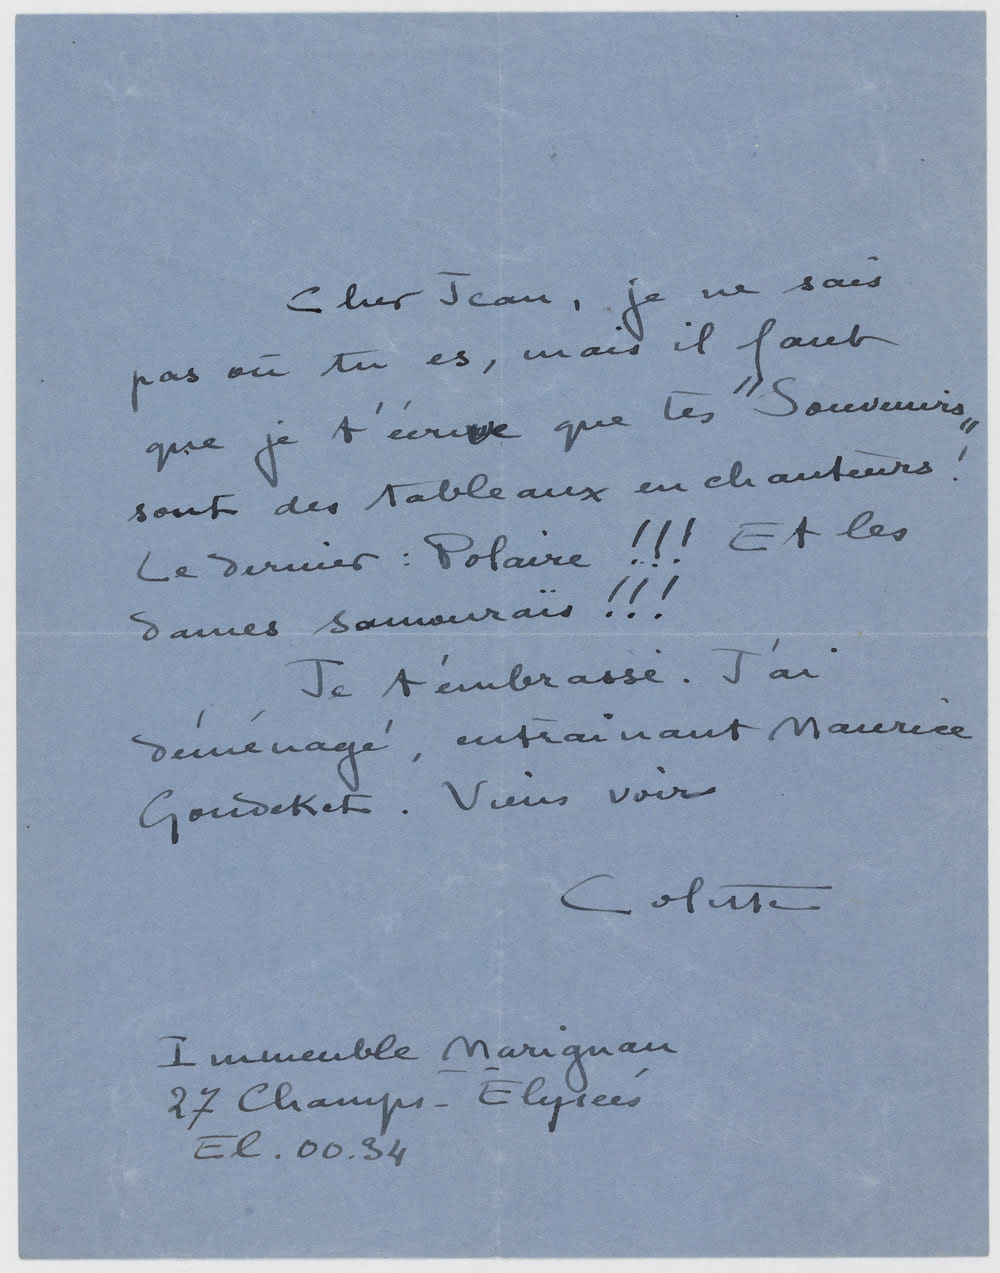 Cher Jean, je ne sais
pas où tu es, mais il faut
que je t'écrive que tes "Souvenirs"
sont des tableaux enchanteurs !
Le dernier : Polaire !!! Et les
dames samouraïs !!!
Je t'embrasse. J'ai
déménagé, entraînant Maurice
Goudeket. Viens voir
Colette
Immeuble Marignan
27 Champs-Élysées
El. 00.34